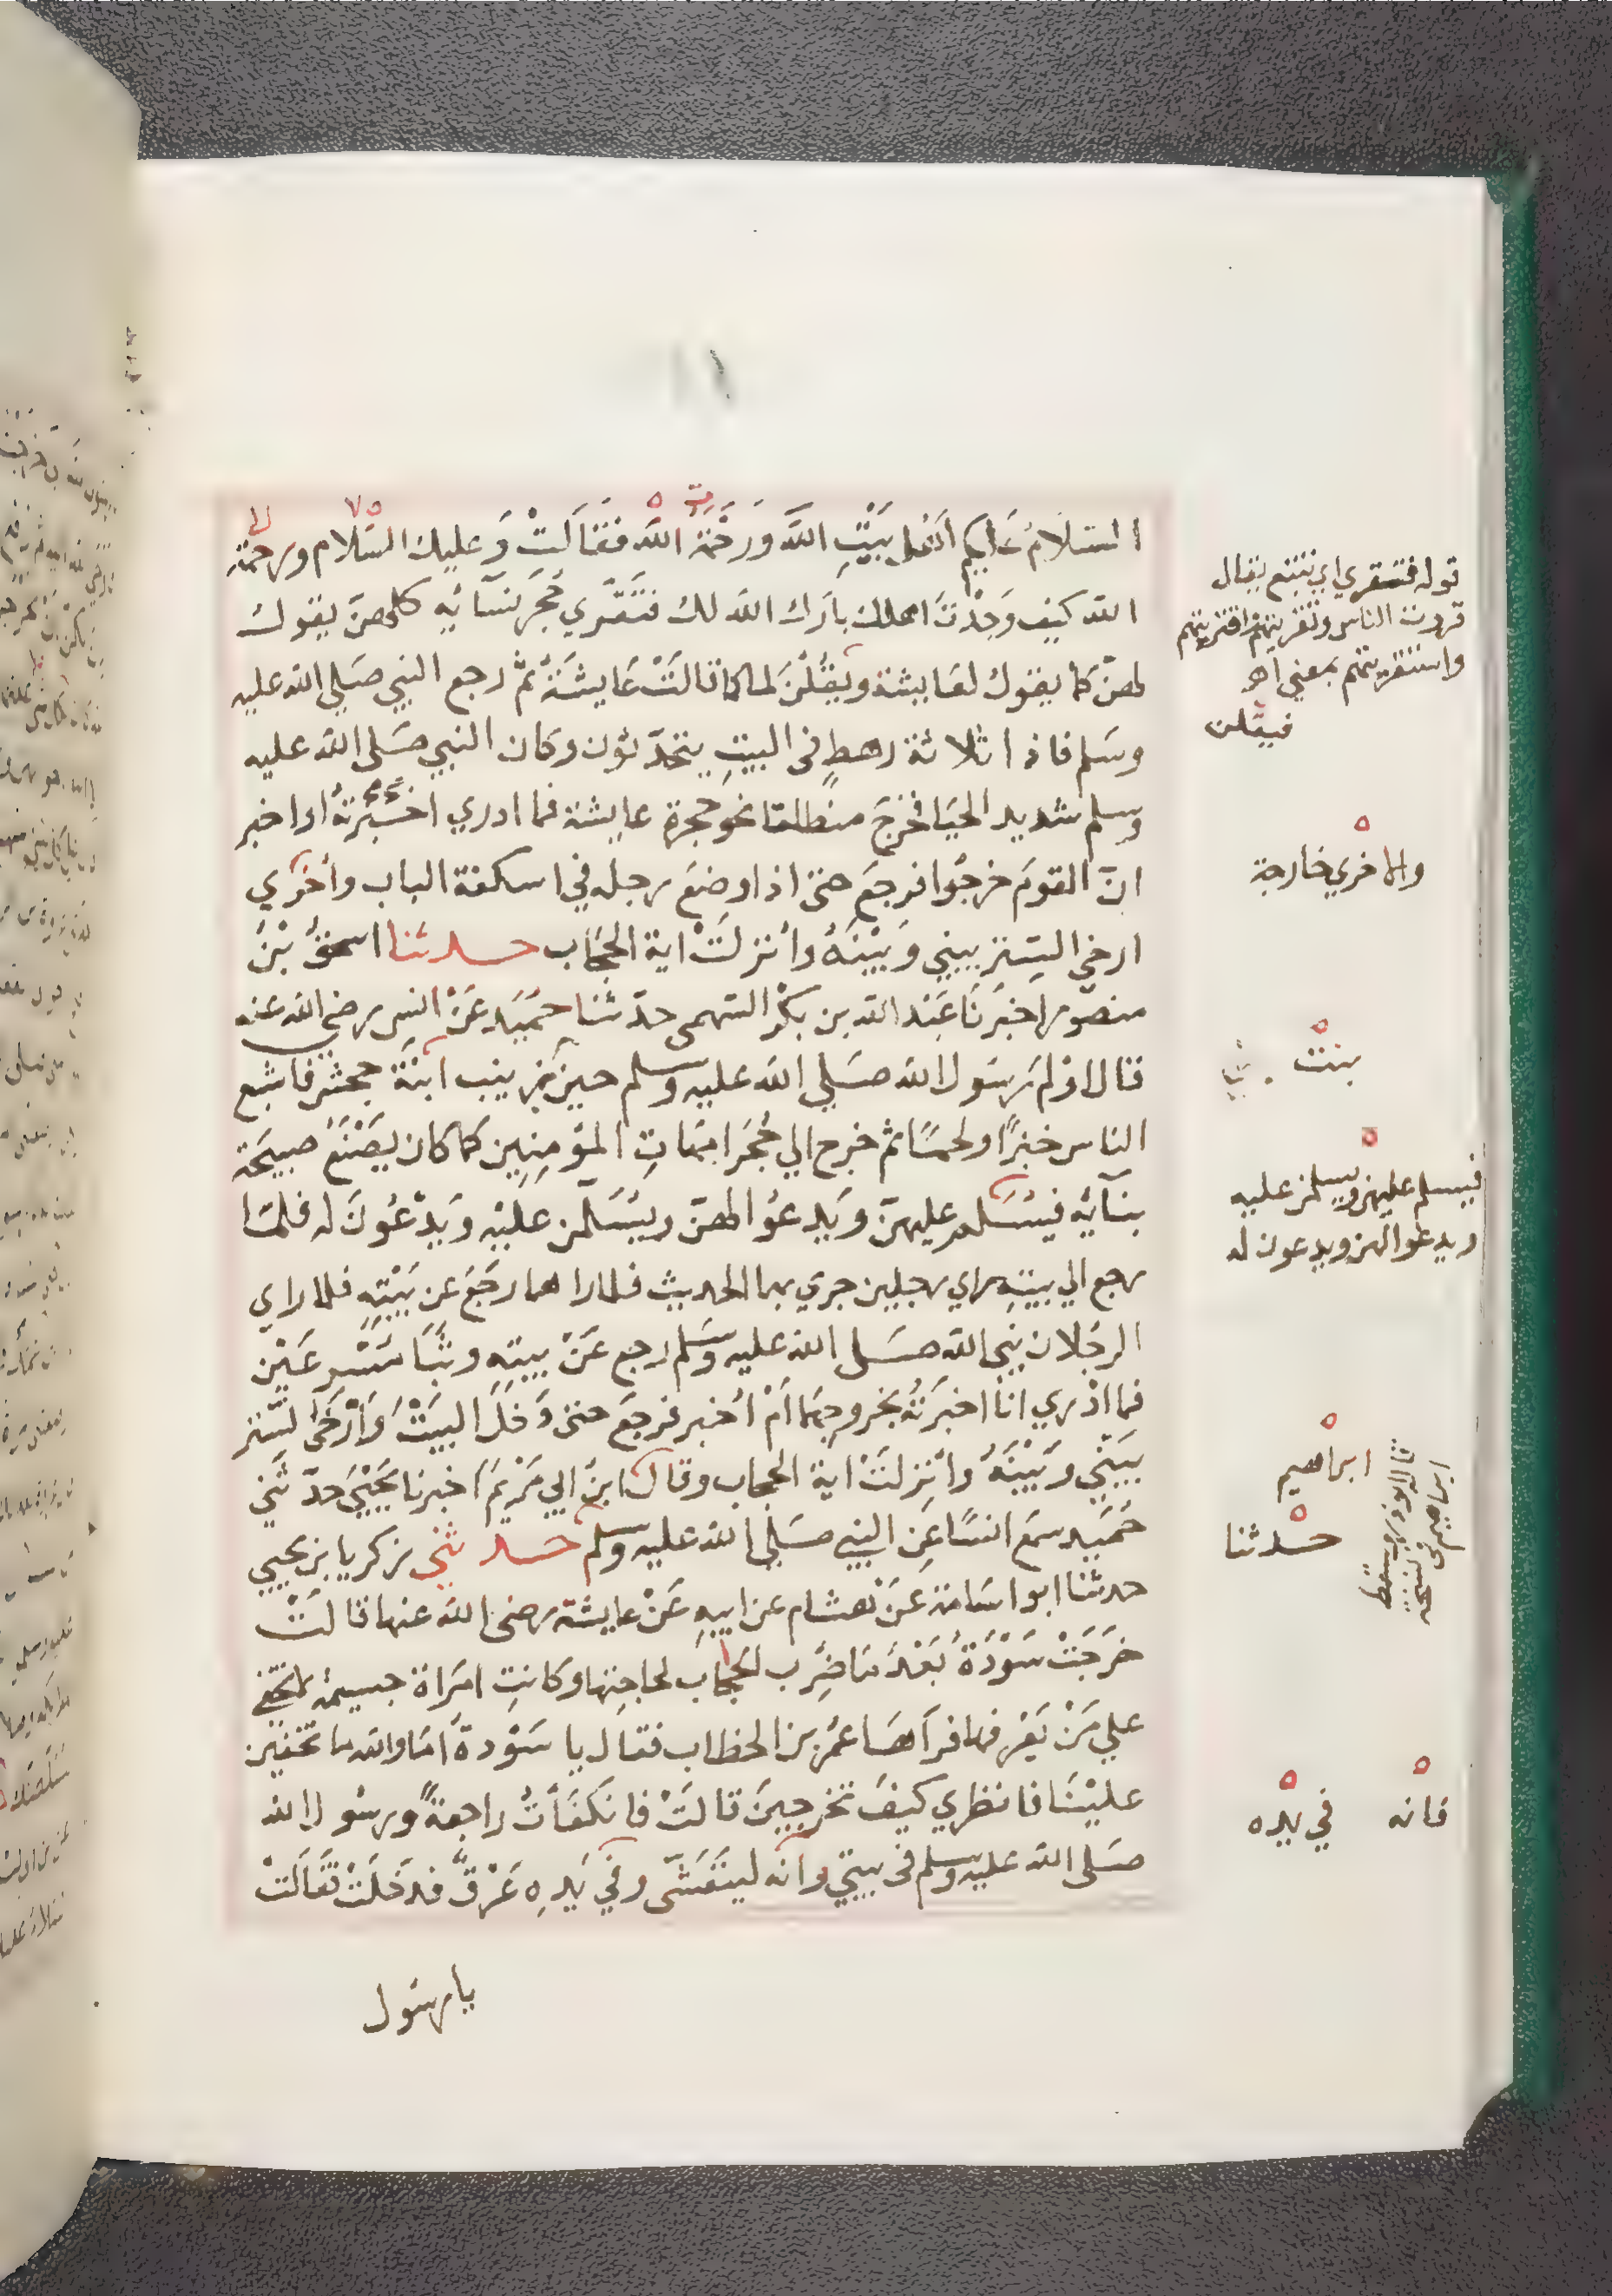 السلام عليكم اهل بيت الله ورحمة الله فقالت وعليك السلام ورحمة
الله كيف وجدت اهلك بارك الله لك فتقري حجر نسائه كلهن يقول
لهن كما يقول لعايشة ويقلن له كما قالت عايشة ثم رجع النبي صلي الله عليه
وسلم فاذا ثلاثة رهط في البيت يتحدثون وكان النبي صلى الله عليه
وسلم شديد الحيا فخرج منطلقا نحو حجرة عايشة فما ادري اخبرته او اخبر
ان القوم خرجوا فرجع حتى اذا وضع رجله في اسكفة الباب وأخري
ارخي الستر بيني وبينه وأنزلت اية الحجاب حدثنا اسحق بن
منصور اخبرنا عبد الله بن بكر السهمي حدثنا حميد عن انس رضي الله عنه
قال اولم رسول الله صلي الله عليه وسلم حين بني بزينب ابنة جحش فاشبع
الناس خبزا ولحما ثم خرج الي حجر امهات المؤمنين كما كان يصنع صبيحة
بنآيه فيسلم عليهن ويدعوا لهن ويسلمن عليه ويدعون له فلما
رجع الي بيته راي رجلين جري بهما الحديث فلما راهما رجع عن بيته فلما راي
الرجلان نبي الله صلى الله عليه وسلم رجع عن بيته وثبا مسرعين
فما ادري انا اخبرته بخروجهما أم أخبر فرجع حتى دخل البيت وأرخى الستر
بيني وبينه وأنزلت اية الحجاب وقال ابن ابي مريم اخبرنا يحيي حدثني
حميد سمع انسا عن النبي صلي الله عليه وسلم حدثني زكريا بن يحيي
حدثنا ابو اسامة عن هشام عن ابيه عن عايشة رضي الله عنها قالت
خرجت سودة بعد ما ضرب الحجاب لحاجتها وكانت امراة جسيمة لا تخفي
علي من يعرفها فرآها عمر بن الخطاب فقال يا سودة أما والله ما تخفين
علينا فانظري كيف تخرجين قالت فانكفأت راجعة ورسول الله
صلى الله عليه وسلم في بيتي وانه ليتعشى وفي يده عرق فدخلت فقالت
يا رسول
قوله فتقري اي تتبع يقال
قروت الناس وتقريتهم واقتريتهم
واستقريتهم بمعني اهـ
فيقلن
والاخري خارجة
بنت
فيسلم عليهن ويسلمن عليه
ويدعوا لهن ويدعون له
ابراهيم
حدثنا
فانه
في يده